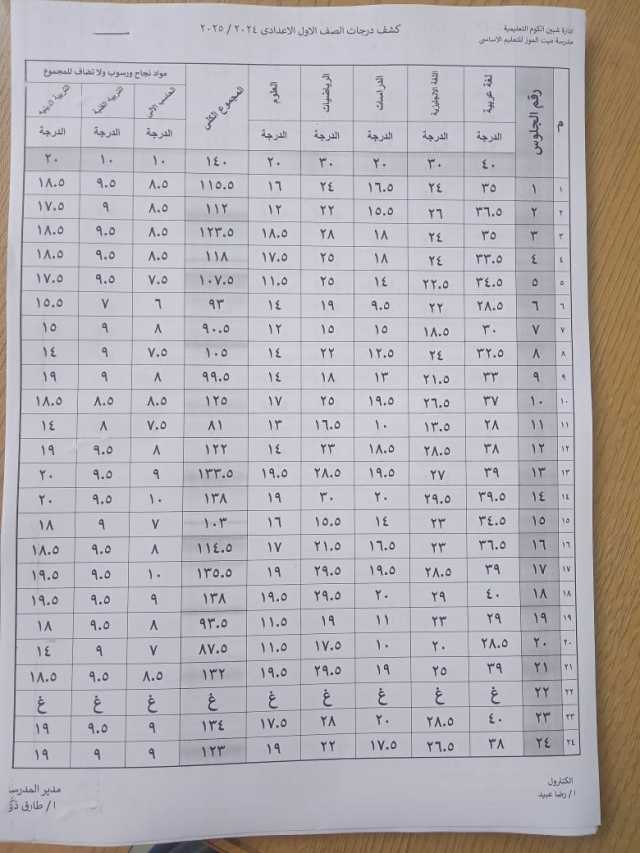 ادارة شبين الكوم التعليمية
مدرسة ميت الموز للتعليم الاساسى
كشف درجات الصف الاول الاعدادى ٢٠٢٤ / ٢٠٢٥
م رقم الجلوس لغة عربية اللغة الانجليزية الدراسات الرياضيات العلوم المجموع الكلى
مواد نجاح ورسوب ولا تضاف للمجموع
الحاسب الالى التربية الفنية التربية الدينية
الدرجة الدرجة الدرجة الدرجة الدرجة الدرجة الدرجة الدرجة
٤٠ ٣٠ ٢٠ ٣٠ ٢٠ ١٤٠ ١٠ ١٠ ٢٠
١ ١ ٣٥ ٢٤ ١٦.٥ ٢٤ ١٦ ١١٥.٥ ٨.٥ ٩.٥ ١٨.٥
٢ ٢ ٣٦.٥ ٢٦ ١٥.٥ ٢٢ ١٢ ١١٢ ٨.٥ ٩ ١٧.٥
٣ ٣ ٣٥ ٢٤ ١٨ ٢٨ ١٨.٥ ١٢٣.٥ ٨.٥ ٩.٥ ١٨.٥
٤ ٤ ٣٣.٥ ٢٤ ١٨ ٢٥ ١٧.٥ ١١٨ ٨.٥ ٩.٥ ١٨.٥
٥ ٥ ٣٤.٥ ٢٢.٥ ١٤ ٢٥ ١١.٥ ١٠٧.٥ ٧.٥ ٩.٥ ١٧.٥
٦ ٦ ٢٨.٥ ٢٢ ٩.٥ ١٩ ١٤ ٩٣ ٦ ٧ ١٥.٥
٧ ٧ ٣٠ ١٨.٥ ١٥ ١٥ ١٢ ٩٠.٥ ٨ ٩ ١٥
٨ ٨ ٣٢.٥ ٢٤ ١٢.٥ ٢٢ ١٤ ١٠٥ ٧.٥ ٩ ١٤
٩ ٩ ٣٣ ٢١.٥ ١٣ ١٨ ١٤ ٩٩.٥ ٨ ٩ ١٩
١٠ ١٠ ٣٧ ٢٦.٥ ١٩.٥ ٢٥ ١٧ ١٢٥ ٨.٥ ٨.٥ ١٨.٥
١١ ١١ ٢٨ ١٣.٥ ١٠ ١٦.٥ ١٣ ٨١ ٧.٥ ٨ ١٤
١٢ ١٢ ٣٨ ٢٨.٥ ١٨.٥ ٢٣ ١٤ ١٢٢ ٨ ٩.٥ ١٩
١٣ ١٣ ٣٩ ٢٧ ١٩.٥ ٢٨.٥ ١٩.٥ ١٣٣.٥ ٩ ٩.٥ ٢٠
١٤ ١٤ ٣٩.٥ ٢٩.٥ ٢٠ ٣٠ ١٩ ١٣٨ ١٠ ٩.٥ ٢٠
١٥ ١٥ ٣٤.٥ ٢٣ ١٤ ١٥.٥ ١٦ ١٠٣ ٧ ٩ ١٨
١٦ ١٦ ٣٦.٥ ٢٣ ١٦.٥ ٢١.٥ ١٧ ١١٤.٥ ٨ ٩.٥ ١٨.٥
١٧ ١٧ ٣٩ ٢٨.٥ ١٩.٥ ٢٩.٥ ١٩ ١٣٥.٥ ١٠ ٩.٥ ١٩.٥
١٨ ١٨ ٤٠ ٢٩ ٢٠ ٢٩.٥ ١٩.٥ ١٣٨ ٩ ٩.٥ ١٩.٥
١٩ ١٩ ٢٩ ٢٣ ١١ ١٩ ١١.٥ ٩٣.٥ ٨ ٩.٥ ١٨
٢٠ ٢٠ ٢٨.٥ ٢٠ ١٠ ١٧.٥ ١١.٥ ٨٧.٥ ٧ ٩ ١٤
٢١ ٢١ ٣٩ ٢٥ ١٩ ٢٩.٥ ١٩.٥ ١٣٢ ٨.٥ ٩.٥ ١٨.٥
٢٢ ٢٢ غ غ غ غ غ غ غ غ غ
٢٣ ٢٣ ٤٠ ٢٨.٥ ٢٠ ٢٨ ١٧.٥ ١٣٤ ٩ ٩.٥ ١٩
٢٤ ٢٤ ٣٨ ٢٦.٥ ١٧.٥ ٢٢ ١٩ ١٢٣ ٩ ٩ ١٩
الكنترول
ا/ رضا عبيد
مدير المدرسة
ا/ طارق